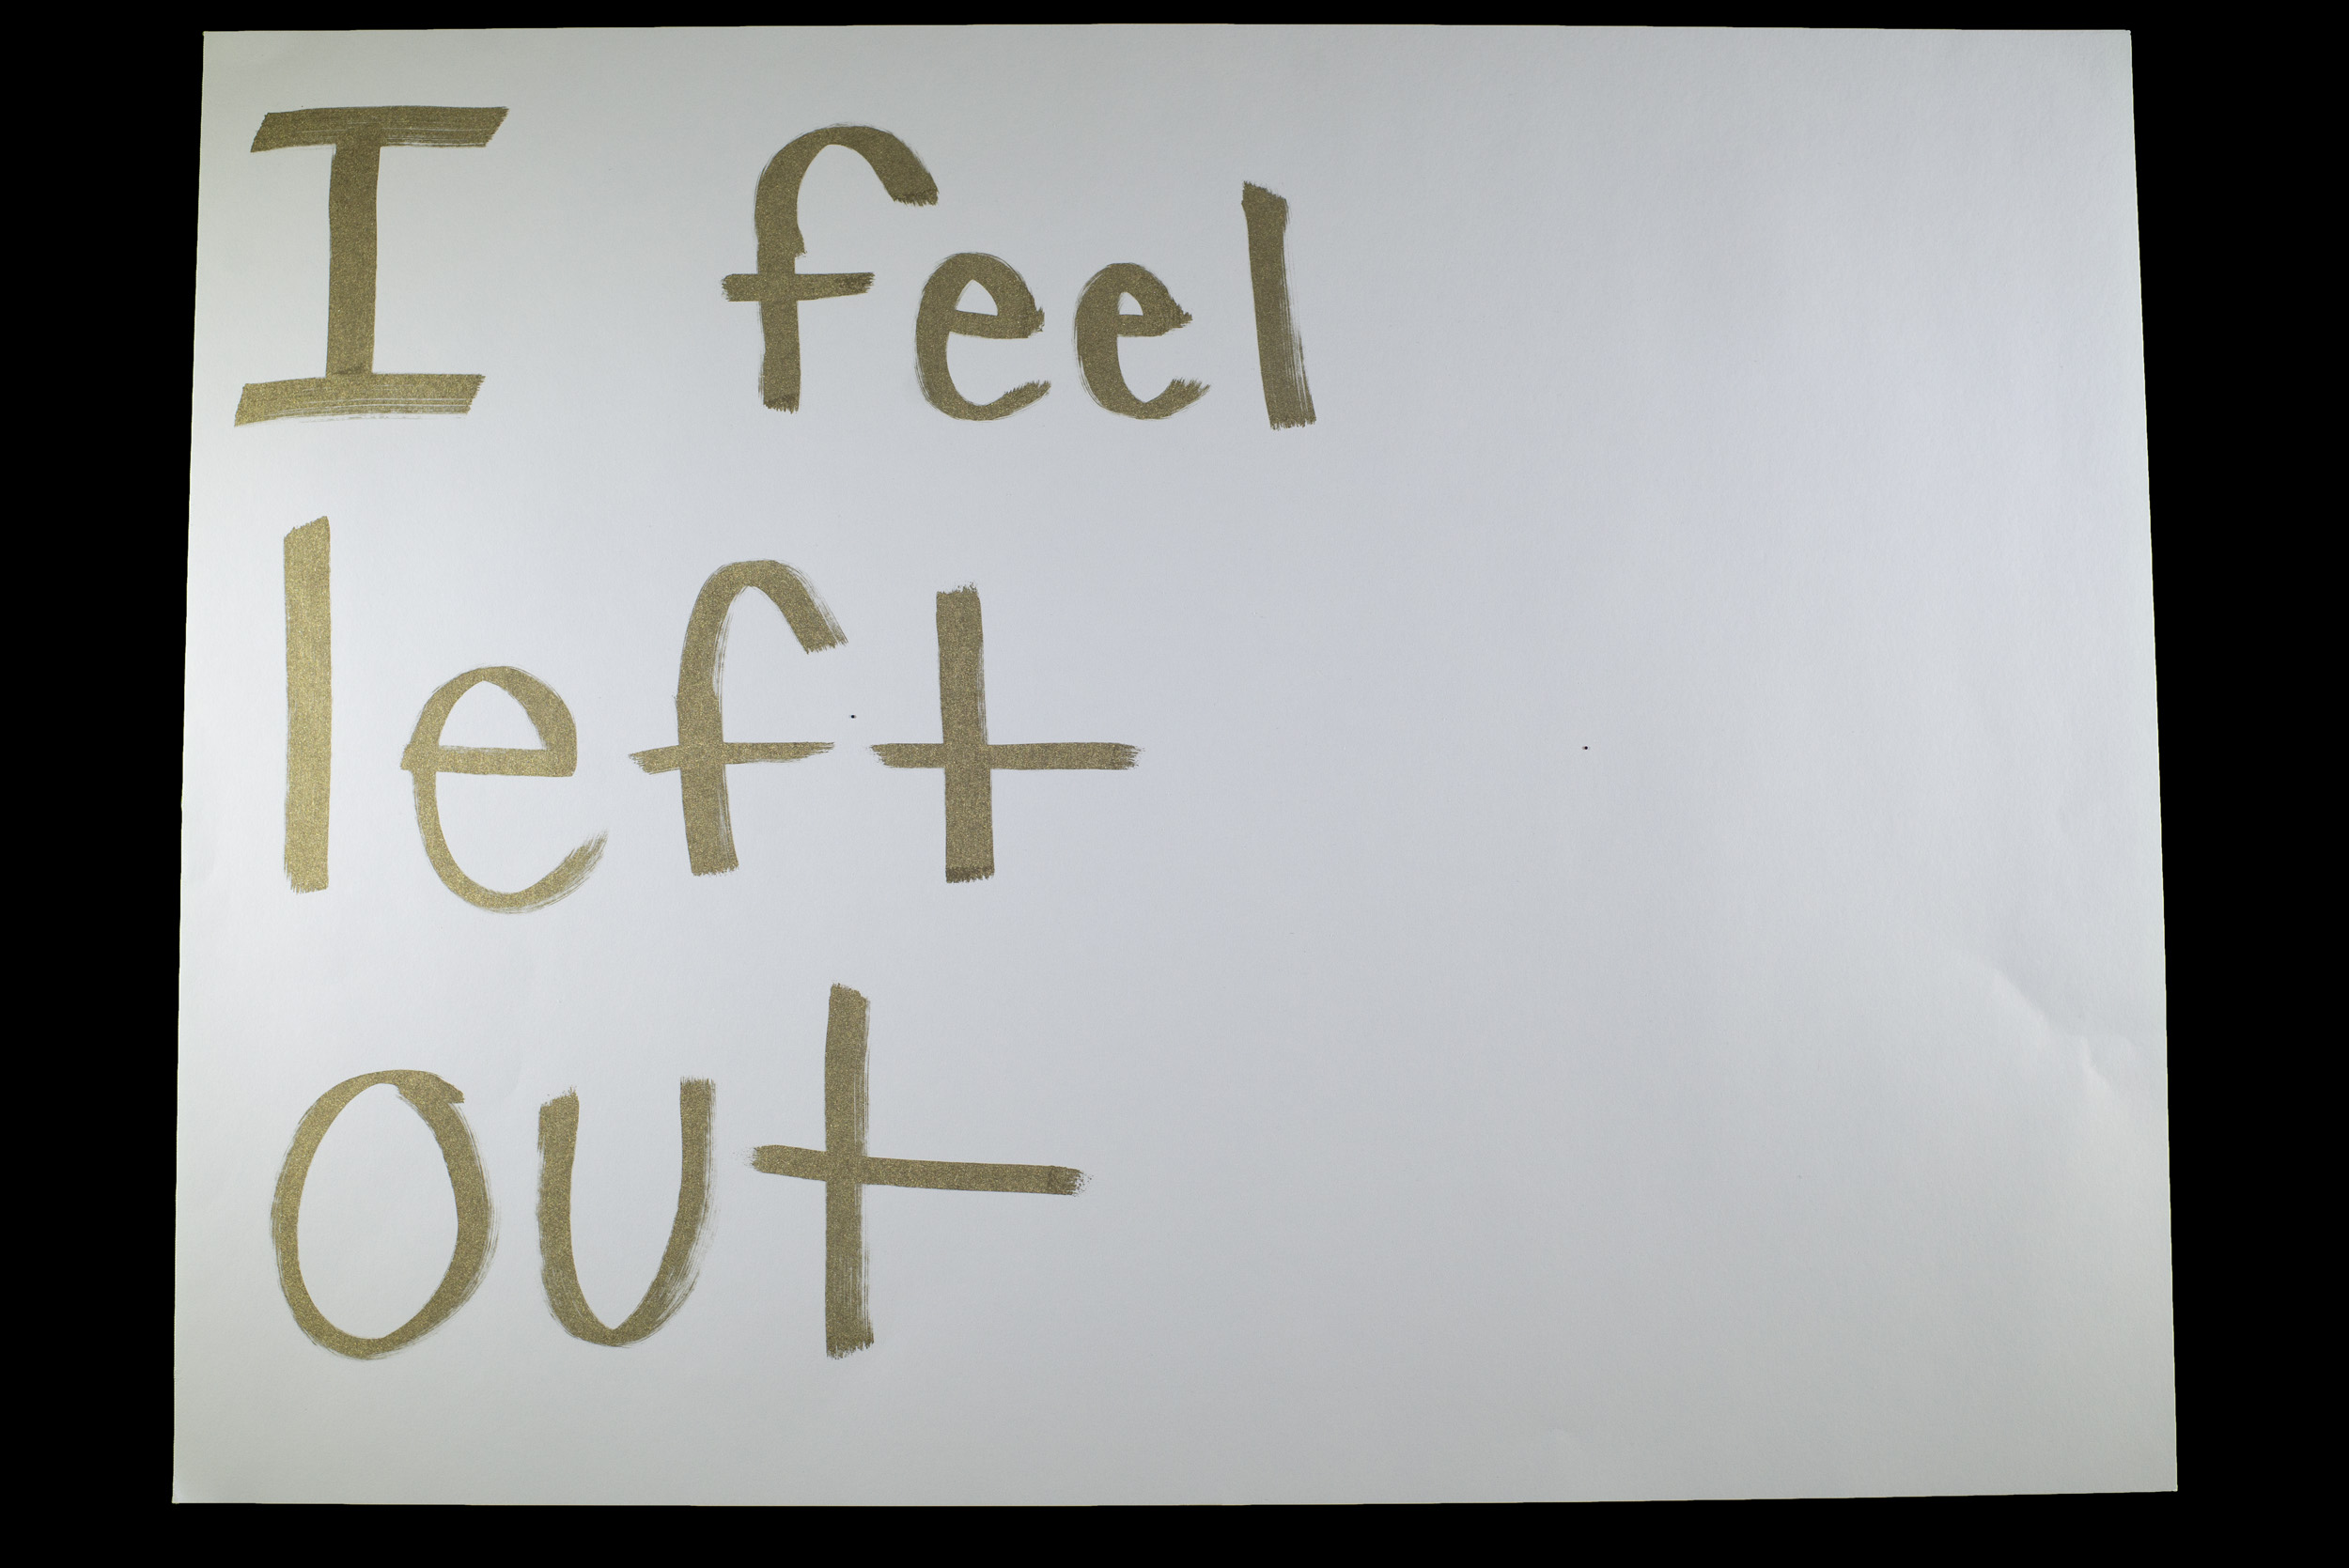 I feel
left
out